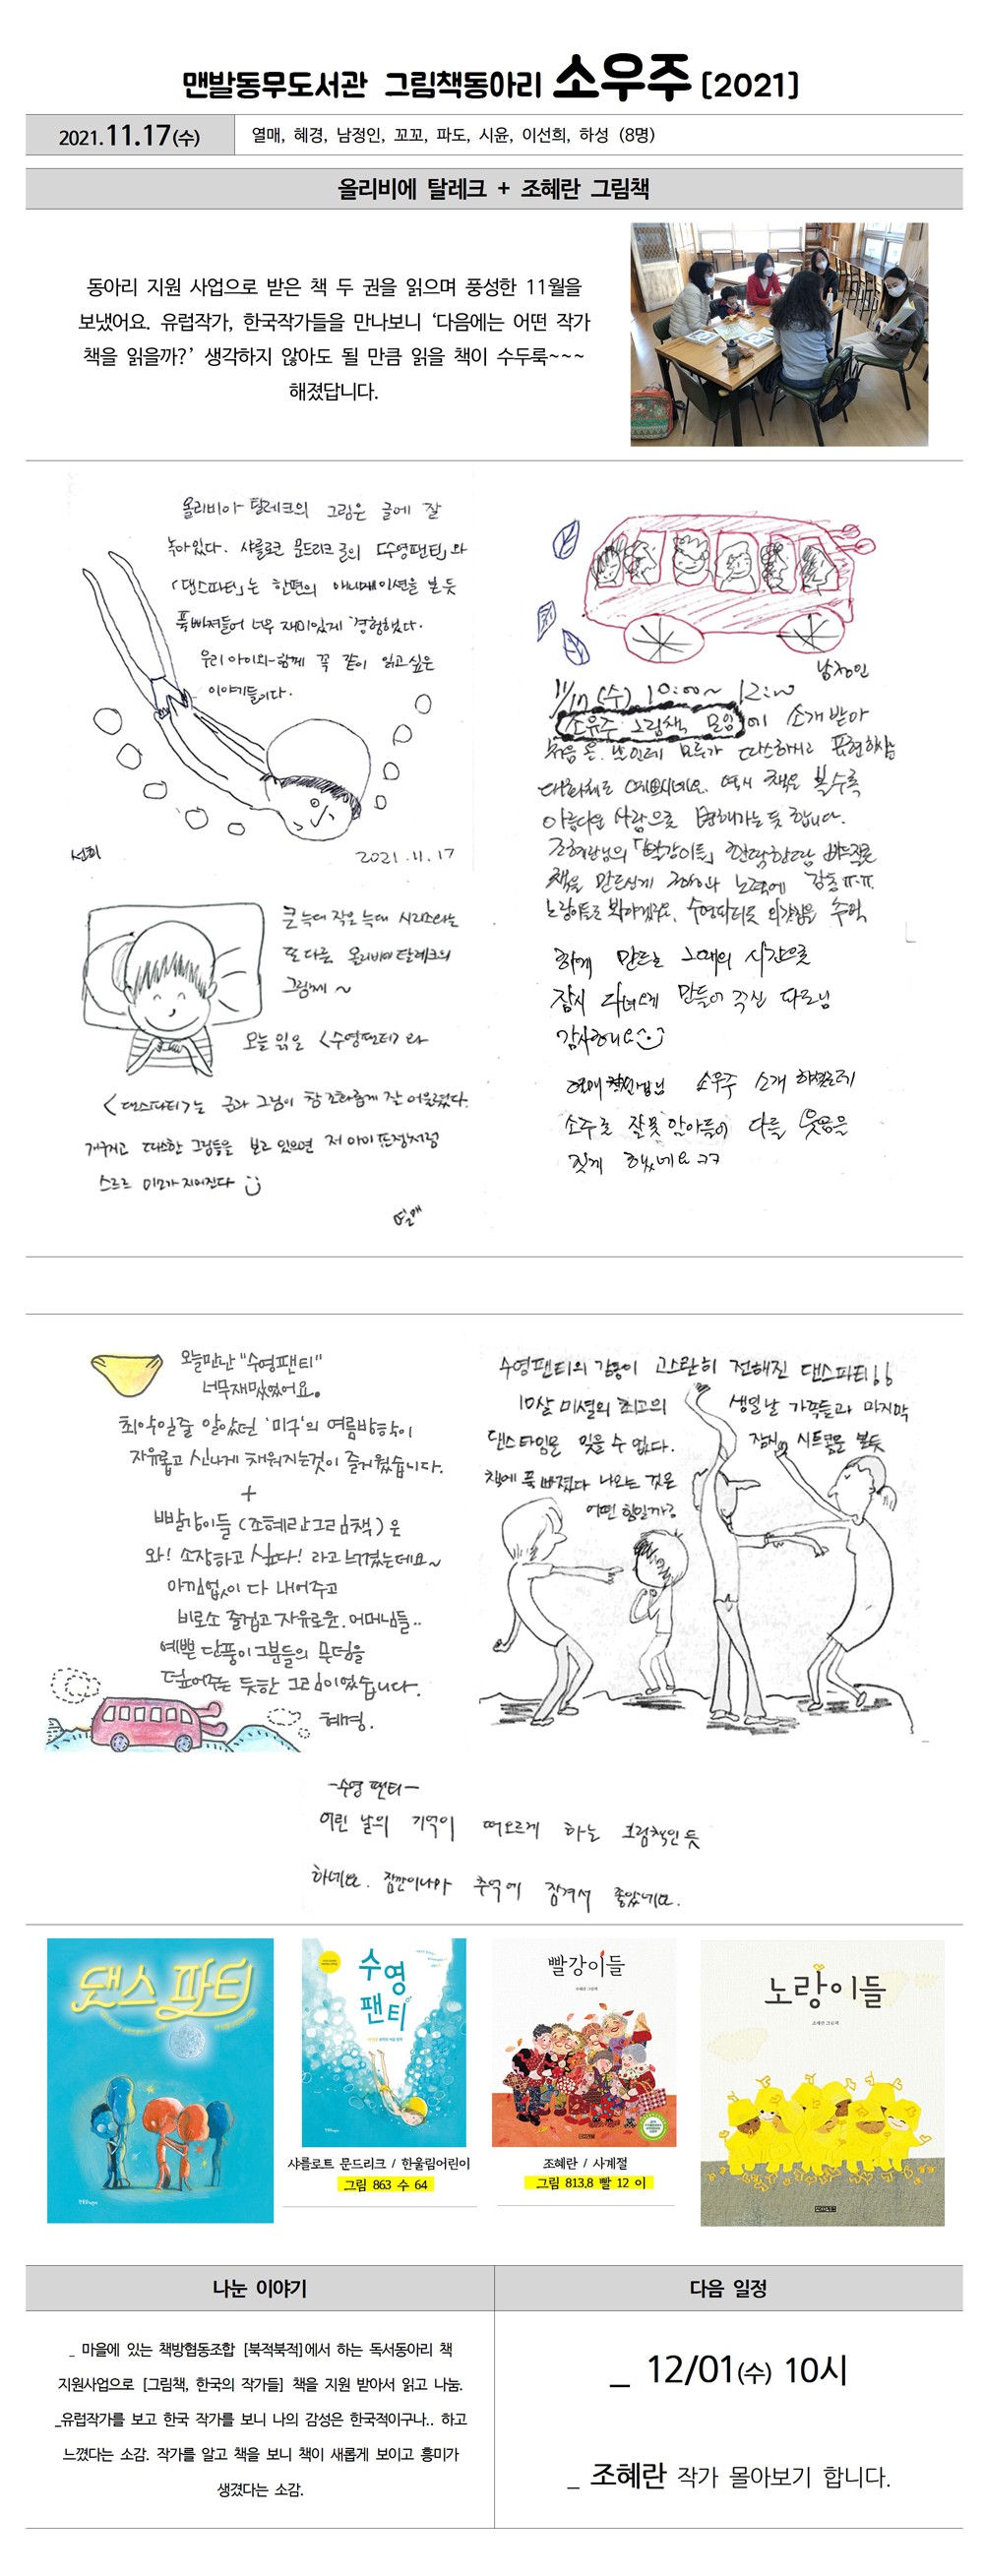 맨발동무도서관 그림책동아리 소우주 [2021]
2021.11.17(수)
열매, 혜경, 남정인, 꼬꼬, 파도, 시윤, 이선희, 하성 (8명)
올리비에 탈레크 + 조혜란 그림책
동아리 지원 사업으로 받은 책 두 권을 읽으며 풍성한 11월을
보냈어요. 유럽작가, 한국작가들을 만나보니 ‘다음에는 어떤 작가
책을 읽을까?’ 생각하지 않아도 될 만큼 읽을 책이 수두룩~~~
해졌답니다.
올리비아 탈레크의 그림은 글에 잘
녹아있다. 샤를로크 문드리크 글의 「수영팬티」와
「댄스파티」는 한편의 애니메이션을 본 듯
푹 빠져들어 너무 재미있게 경험했다.
우리 아이와 함께 꼭 같이 읽고 싶은
이야기들이다.
선희
2021.11.17
큰 늑대 작은 늑대 시리즈와는
또 다른 올리비에 탈레크의
그림체~
오늘 읽은 <수영팬티>와
<댄스파티>는 글과 그림이 참 조화롭게 잘 어울렸다.
개구지고 따스한 그림들을 보고 있으면 저 아이 표정처럼
스르르 미소가 지어진다
열매
남정인
11/17 (수) 10:00~ 12:00
소우주 그림책 모임에 소개 받아
처음 온 날인데 모두가 따스하시고 표현하심
대화체로 역시 책은 볼수록
아름다운 사람으로 변해가는 듯 합니다.
조혜란님의 「빨강이들」 한땀한땀 바느질로
책을 만드신게 정성과 노력에 감동 ㅠ.ㅠ.
노랑이들도 봐야겠어요. 수영파티로 추억
함께 만드는 그때의 시간으로
잠시 다녀오게 만들어 주신 파도님
감사해요
열매 소우주 소개 하셨는데
소주로 잘못 알아들어 다들 웃음을
짓게 했네요 ㅋㅋ
오늘만난 "수영팬티"
너무재밌었어요.
최악일줄 알았던 '미구'의 여름방학이
자유롭고 신나게 채워지는것이 즐거웠습니다.
+
빨강이들 (조혜란그림책)은
와! 소장하고 싶다! 라고 느꼈는데요~
아낌없이 다 내어주고
비로소 즐겁고 자유로운.어머님들..
예쁜 단풍이 그분들의 무덤을
덮어주는 듯한 그림이었습니다.
혜경.
수영팬티의 감동이 고스란히 전해진 댄스파티!!
10살 미셸의 최고의 생일날 가족들과 마지막
댄스타임은 잊을 수 없다. 잠시 시트콤을 본듯
책에 푹 빠졌다 나오는 것은
어떤 힘일까?
-수영 팬티-
어린 날의 기억이 떠오르게 하는 그림책인 듯
하네요. 잠깐이나마 추억에 잠겨서 좋았네요.
댄스 파티
수영
팬티
빨강이들
조혜란 그림책
노랑이들
조혜란 그림책
샤를로트 문드리크 / 한울림어린이
그림 863 수 64
조혜란 / 사계절
그림 813.8 빨 12 이
나눈 이야기
다음 일정
_ 마을에 있는 책방협동조합 [북적북적]에서 하는 독서동아리 책
지원사업으로 [그림책, 한국의 작가들] 책을 지원 받아서 읽고 나눔.
_유럽작가를 보고 한국 작가를 보니 나의 감성은 한국적이구나.. 하고
느꼈다는 소감. 작가를 알고 책을 보니 책이 새롭게 보이고 흥미가
생겼다는 소감.
_ 12/01(수) 10시
_ 조혜란 작가 몰아보기 합니다.